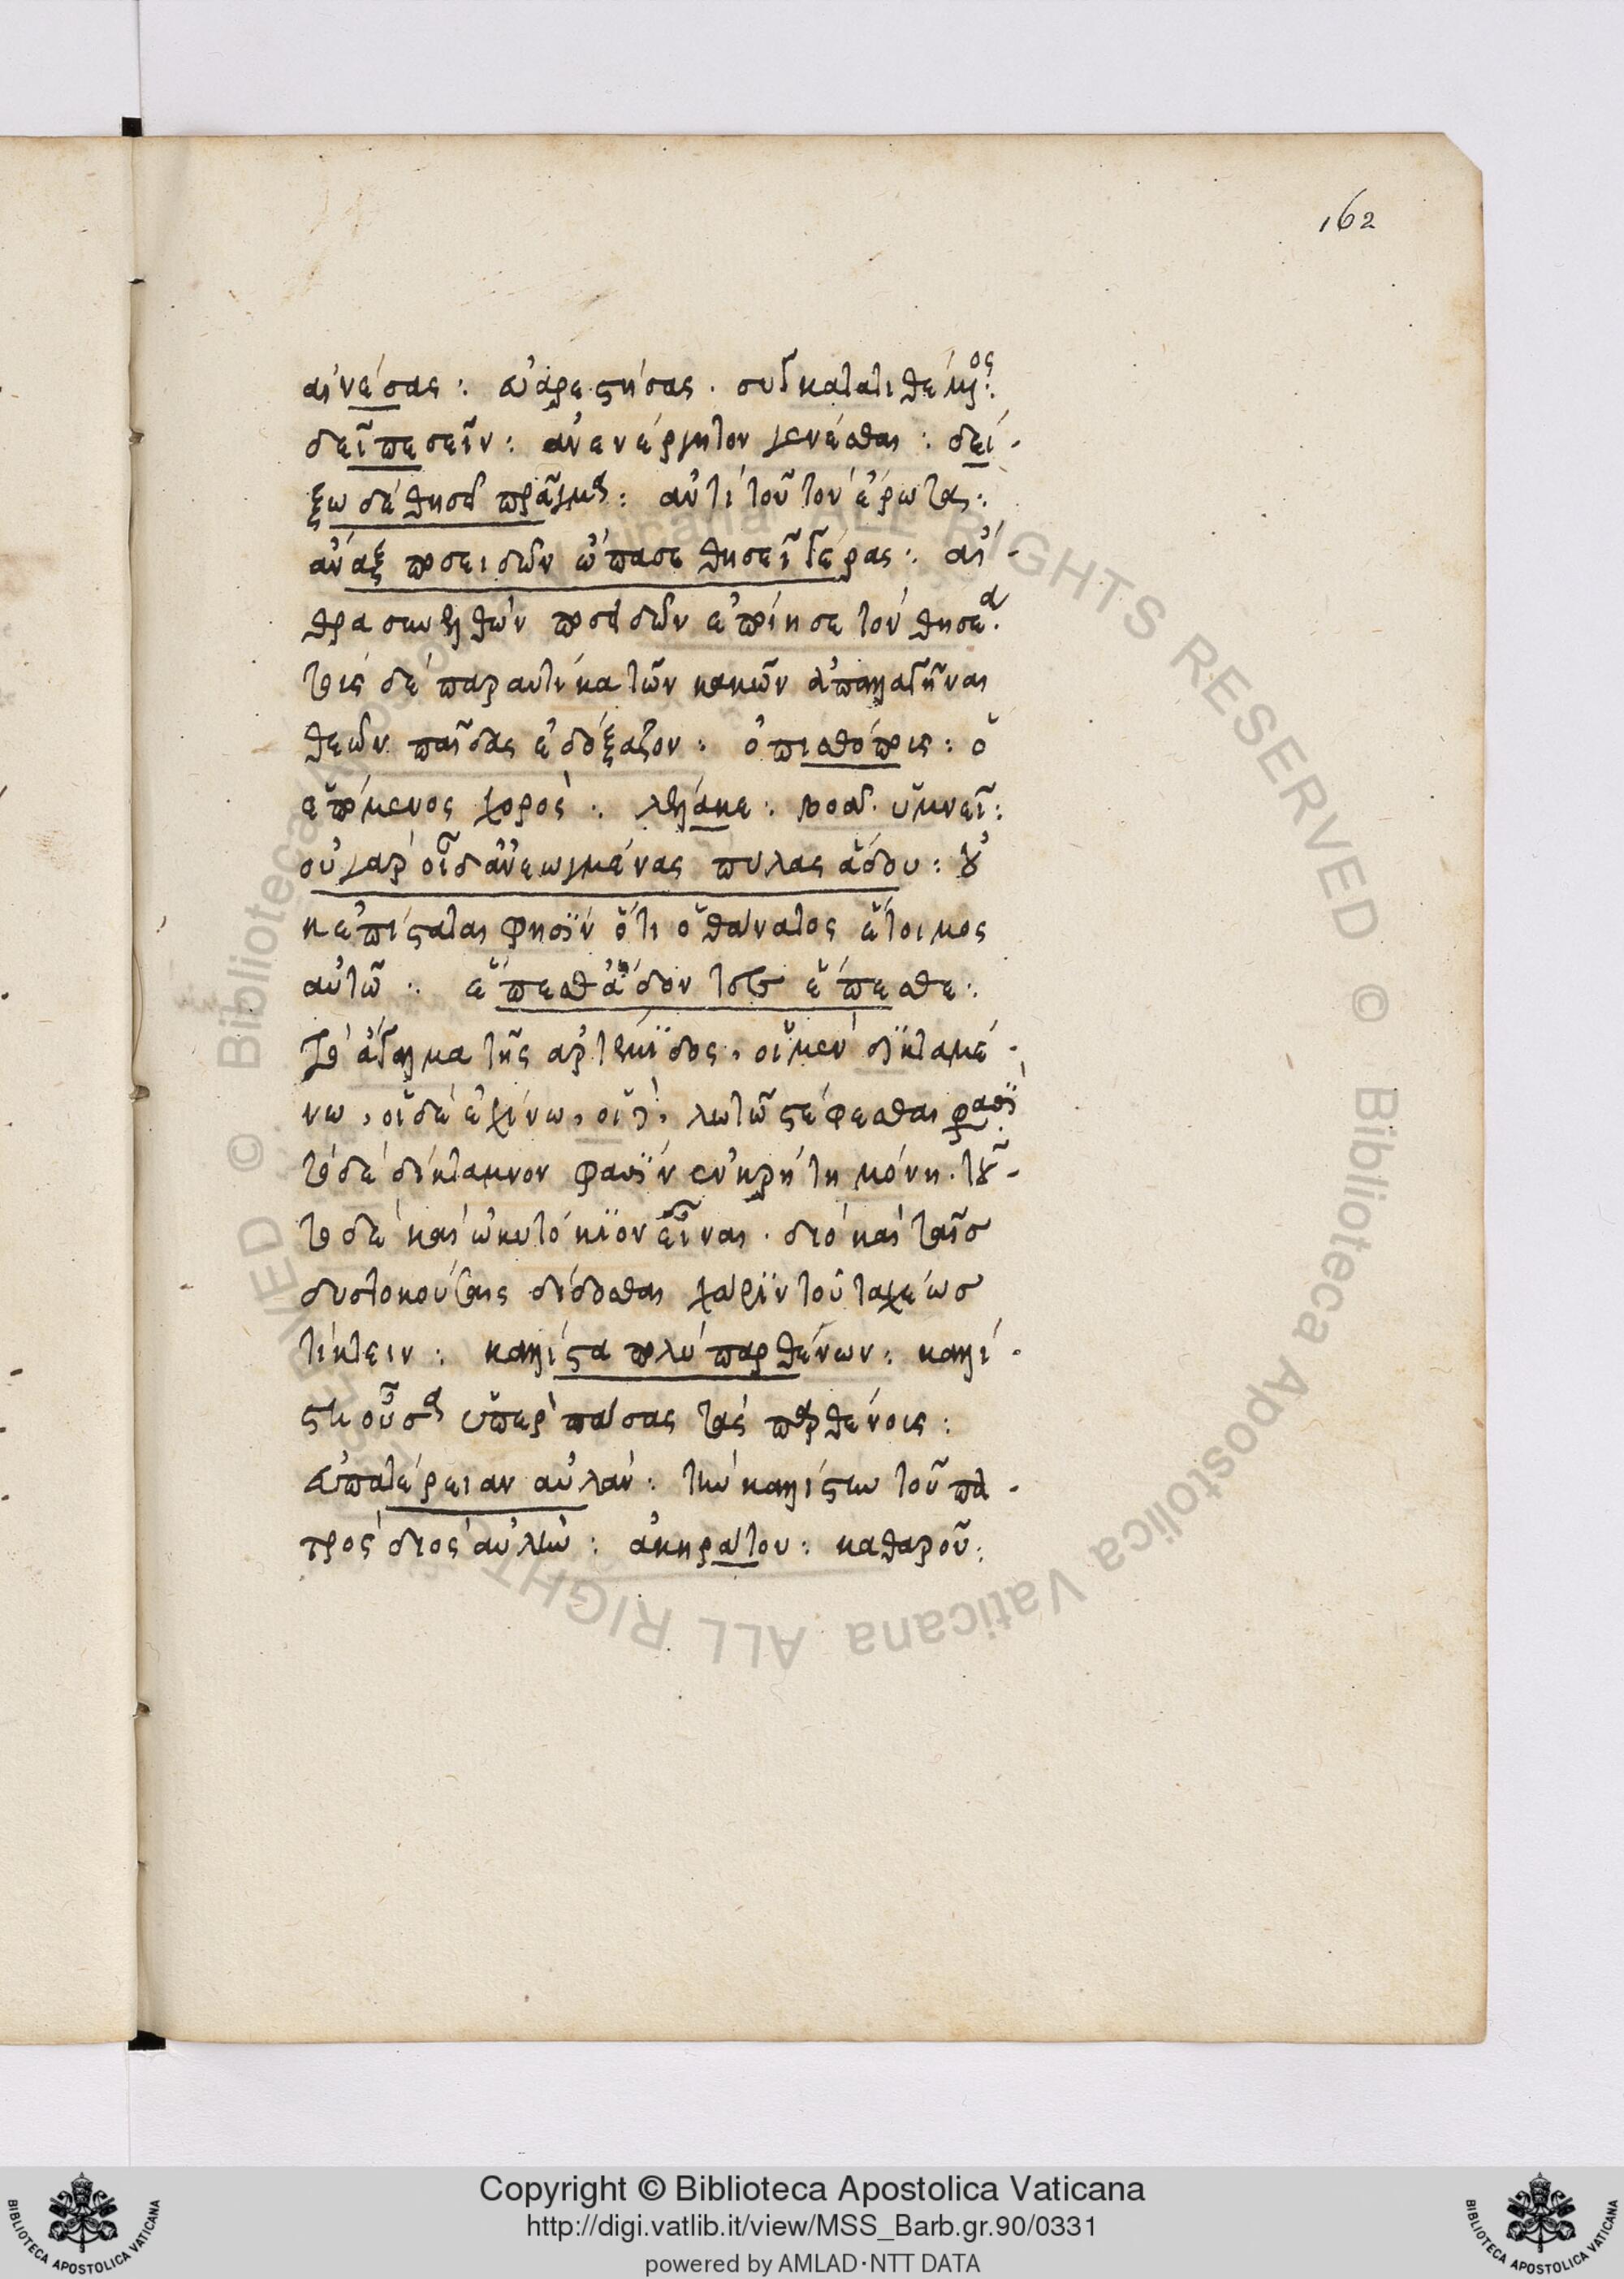 162
αἰνέσας : εὐαρεστήσας . συγκατατιθέμενος :
δεῖ πεσεῖν : ἀνενέργητον γενέσθαι : δεί -
ξω δὲ θησεῖ πρᾶγμα : ἀντὶ τοῦ τὸν ἔρωτα :
ἄναξ ποσειδῶν ὤπασε θησεῖ γέρας : αἴ -
θρα συνελθὼν ποσειδῶν ἐποίησε τὸν θησέα .
τοὺς δὲ παραυτίκα τῶν κακῶν ἀπαλλαγῆναι
θεῶν παῖδας ἐδόξαζον : ὀπισθόπους : ὁ
ἑπόμενος χορός : λέλακε : βοᾷ . ὑμνεῖ :
οὐ γὰρ οἶδ' ἀνεωγμένας πύλας ἅδου : οὐ
κ ἐπίσταται φησὶν ὅτι ὁ θάνατος ἕτοιμος
αὐτῶ : ἕπεσθ' ἄδοντες ἕπεσθε :
τὸ ἄγαλμα τῆς ἀρτέμιδος , οἱ μὲν δικταμέ -
νω , οἱ δὲ ἐχίνω , οἱ δὲ , λωτῶ στέφεσθαι φασὶ
τὸ δὲ δίκταμνον φασὶν ἐν κρήτη μόνη . τοῦ -
το δὲ καὶ ὠκυτόκιον εἶναι . διὸ καὶ ταῖσ
δυστοκούσαις δίδοσθαι χάριν τοῦ ταχέωσ
τίκτειν : καλλίστα πολὺ παρθένων : καλλί -
στη οὖσα ὑπὲρ πάσας τὰς παρθένοις :
εὐπατέρειαν αὐλάν : τὴν καλλίστην τοῦ πα -
τρὸς διὸς αὐλήν : ἀκηράτου : καθαροῦ :
Copyright © Biblioteca Apostolica Vaticana
http://digi.vatlib.it/view/MSS_Barb.gr.90/0331
powered by AMLAD·NTT DATA
BIBLIOTECA APOSTOLICA VATICANA
BIBLIOTECA APOSTOLICA VATICANA
© Biblioteca Apostolica Vaticana ALL RIGHTS RESERVED © Biblioteca Apostolica Vaticana ALL RIGHTS RESERVED